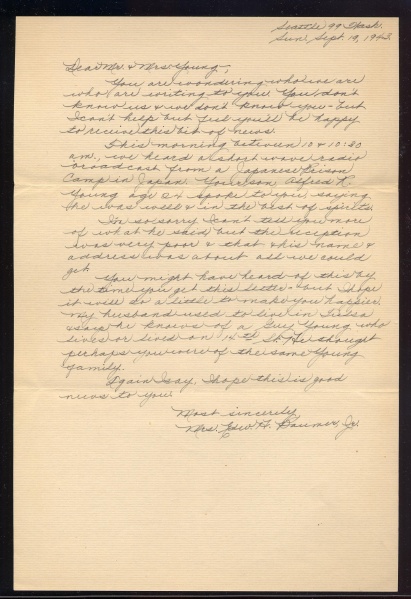 Seattle 99 Wash.
Sun. Sept 19, 1943
Dear Mr. & Mrs. Young,
You are wondering who we are
who are writing to you. You don't
know us & we don't know you - but
I can't help but feel you'll be happy
to receive this bit of news.
This morning between 10 & 10:30
am, we heard a short wave radio
broadcast from a Japanese Prison
Camp in Japan. Your son Alfred R.
Young age 21, spoke to you saying
he was well & in the best of spirits.
I'm so sorry I can't tell you more
of what he said but the reception
was very poor & that & his name &
address was about all we could
get.
You might have heard of this by
the time you get this letter - but I hope
it will do a little to make you happier.
My husband used to live in Tulsa
& says he knows of a Guy Young who
lives or lived on 14th St. He thought
perhaps you were of the same Young
family.
Again I say, I hope this is good
news to you.
Most sincerely
Mrs. Edw. H. Baumer, Jr.